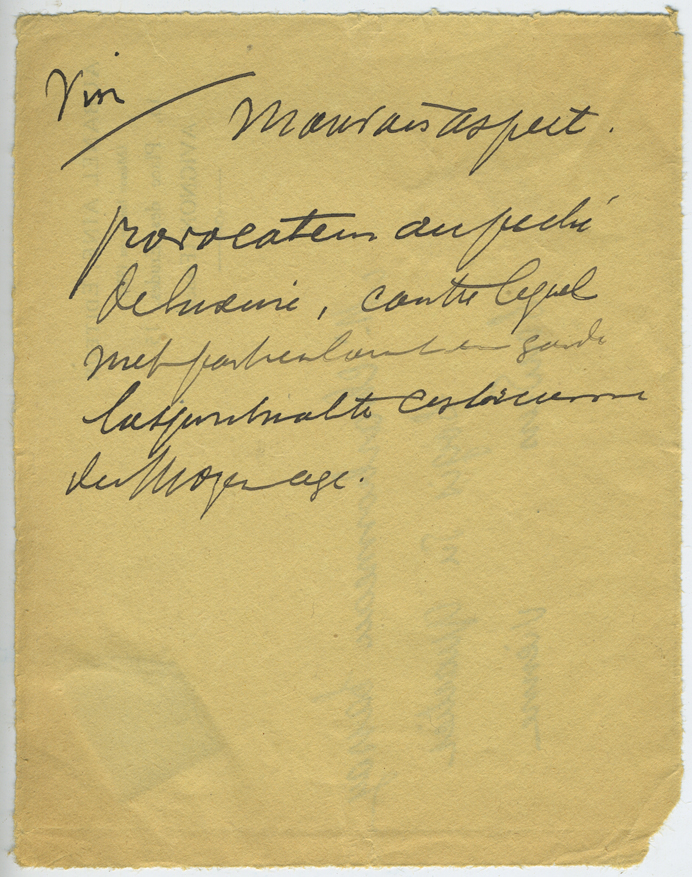 Vin / Mauvais aspect.
provocateur au péché
de luxure, contre lequel
met particulièrement en garde
la spiritualité cistercienne
du Moyen age.